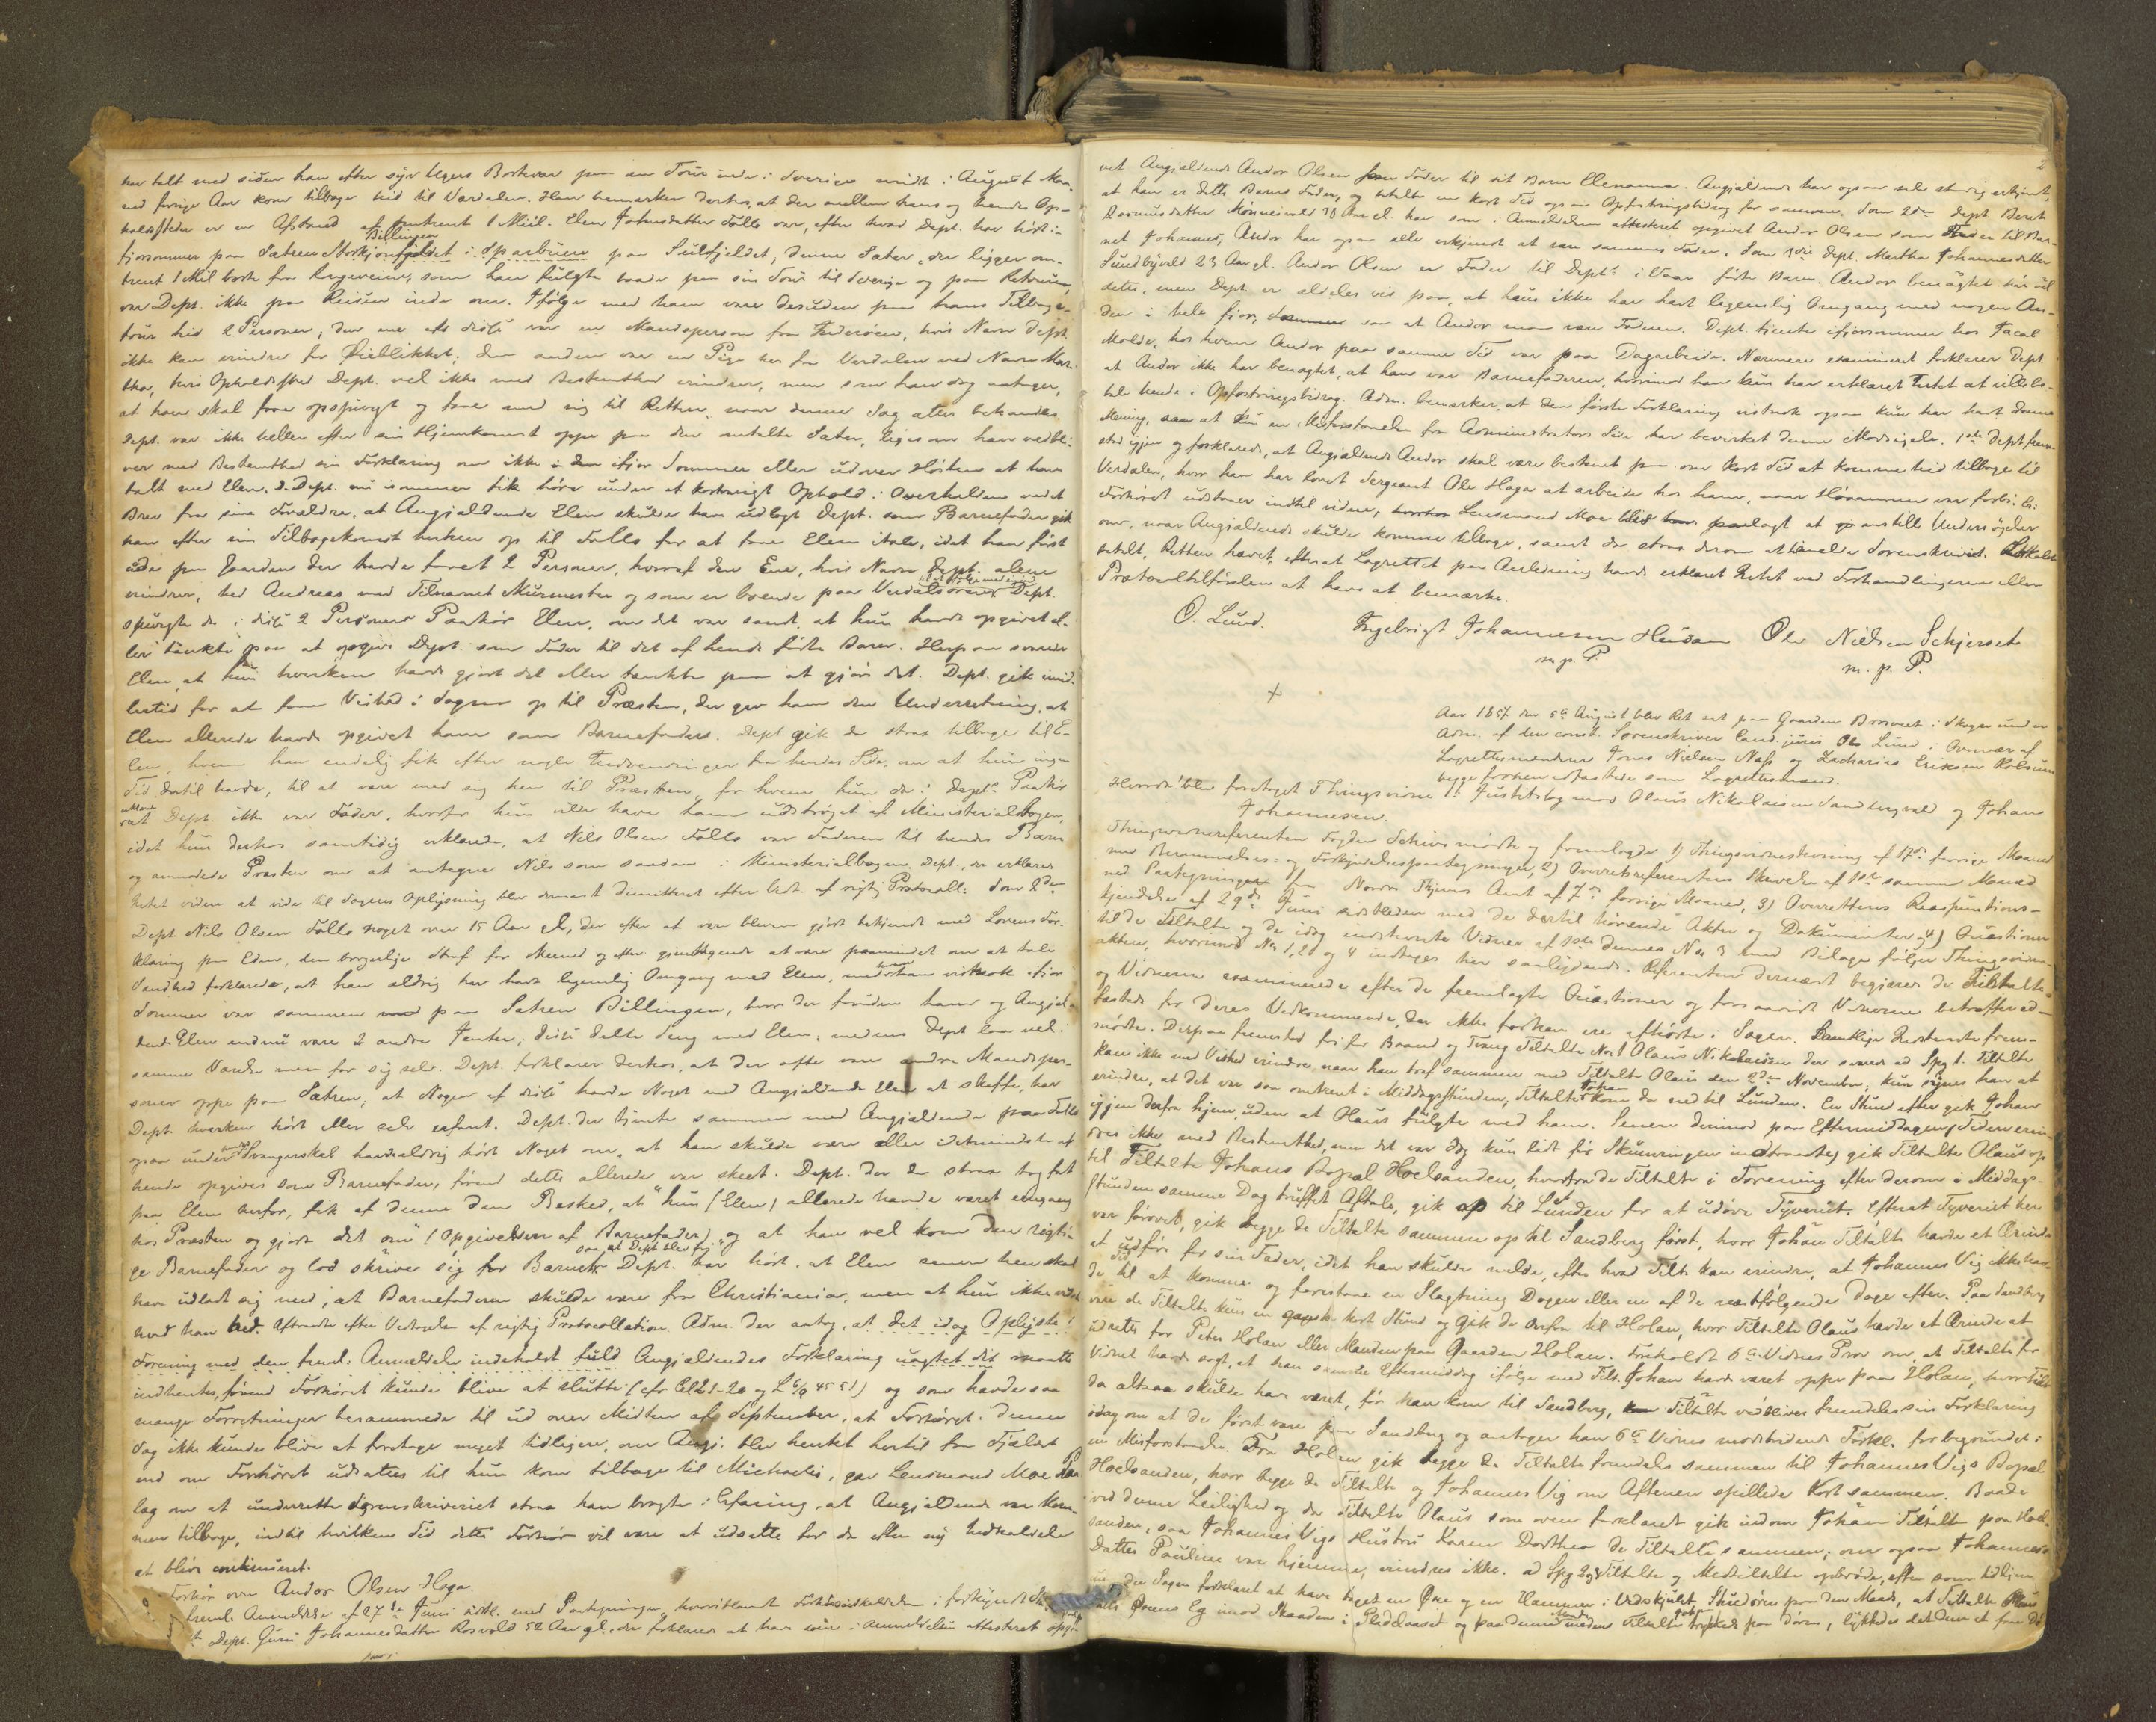 har talt med siden han efter syv Ugers Bortvær paa en Tour inde i Sverige midt i August Maa-
ned forrige Aar kom tilbage hid til Værdalen. Han bemærker derhos, at der mellem hans og hendes Op-
holdssteder er en Afstand af omtrent 1 Miil. Elen Johnsdatter Follo var, efter hvad Dept. har hørt i
Billingen
fjorsommer paa Sætren Storkjønfjeldet i Sparbuen paa Sulfjeldet, denne Sæter, der ligger om-
trent 1 Mil borte fra Kongeveien, som han fulgte baade paa sin Tour til Sverige og paa Retouren,
var Dept. ikke paa Reisen inde om. Ifølge med ham vare desuden paa hans Tilbage-
tour hid 2 Personer, den ene af disse var en Mandsperson fra Inderøen, hvis Navn Dept.
ikke kan erindre for Øieblikket; den anden var en Pige her fra Verdalen ved Navn Mar-
tha, hvis Opholdssted Dept. vel ikke med Bestemthed erindrer, men som han dog antager,
at han skal faae opspurgt og tage med sig til Retten, naar denne Sag atter behandles.
Dept. var ikke heller efter sin Hjemkomst oppe paa den omtalte Sæter, ligesom han vedbli-
ver med Bestemthed sin Forklaring om ikke i den ifjor Sommer eller udover Høsten at have
talt med Elen. Dept. nu isommer fik høre under et kortvarigt Ophold i Overhalden ved et
Brev fra sine Forældre, at Angjældende Elen skulde have udlagt Dept. som Barnefader gik
han efter sin Tilbagekomst herhen op til Follo for at faae Elen i tale, idet han først
ude paa Gaarden der havde faaet 2 Personer, hvoraf den Ene, hvis Navn Dept. alene
erindrer, hed Andreas med Tilnavnet Murmester og som er boende paa Verdalsøren Dept.
spurgte da i disse 2 Personers Paahør Elen, om det var sandt, at hun havde opgivet el-
ler tænkte paa at opgive Dept. som Fader til det af hende fødte Barn. Herpaa svarede
Elen, at hun hverken havde gjort det eller tænkte paa at gjøre det. Dept. gik imid-
lertid for at faae Vished i Sagen op til Præsten, der gav ham den Underretning, at
Elen allerede havde opgivet ham som Barnefader. Dept. gik da strax tilbage til E-
len, hvem han endelig fik efter nogle Indvendinger fra hendes Side, om at hun ingen
Tid dertil havde, til at være med sig hen til Præsten, for hvem hun da i Depts Paahør
erklærede Dept. ikke var Fader, hvorfor hun vilde have ham udstrøget af Ministerialbogen,
idet hun derhos samtidig erklærede, at Nils Olsen Follo var Faderen til hendes Barn
og anmodede Præsten om at antegne Nils som saadan i Ministerialbogen. Dept., der erklærer
Intet videre at vide til Sagens Oplysning blev dernæst dimitteret efter Vedt. af rigtig Protocoll. Som 2den
Dept. Nils Olsen Follo noget over 15 Aar gl., der efter at være bleven gjort bekjendt med Lovens For-
klaring paa Eden, den borgerlige Straf for Meened og efter gjentagende at være paamindet om at tale
Sandhed forklarede, at han aldrig har havt legemlig Omgang med Elen, med hvem han vistnok ifjor
Sommer var sammen paa Sætren Billingen, hvor der foruden ham og Angjæl-
dende Elen endnu vare 2 andre Jenter; disse delte Seng med Elen, medens Dept. laae vel i
samme Værelse men for sig selv. Dept. forklarer derhos, at der ofte vare andre Mandsper-
soner oppe paa Sætren; at Nogen af disse havde Noget med Angjældende Elen at skaffe, har
Dept. hverken hørt eller selv erfaret. Dept. der tjente sammen med Angjældende paa Follo
ogsaa under Svangerskab havde aldrig hørt Noget om, at han skulde være eller idetmindste af
hende opgives som Barnefader, førend dette allerede var skeet. Dept. der da strax tog fat
paa Elen herfor, fik af denne den Besked, at "hun (Elen) allerede havde været engang
hos Præsten og gjort det om" (Opgivelsen af Barnefader) og at han vel kom den rigti-
saa at Dept. blev fri"
ge Barnefader og lod skrive sig for Barnet. Dept. har hørt, at Elen senere hen skal
have udladt sig med, at Barnefaderen skulde være fra Christiania, men at hun ikke vidste
hvad han hed. Aftraadte efter Vedtagelse af rigtig Protocollation. Adm. der antog, at det idag Oplyste i
Forening med den freml. Anmeldelse indeholdt fuld Angjældendes Forklaring uagtet dit maatte
indhentes, førend Forhøret kunde blive at slutte (cfr Crl 21-20 og L 6/9 45 § 1) og som havde saa
mange Forretninger berammede til ud over Midten af September, at Forhøret i denne
Sag ikke kunde blive at foretage meget tidligere, om Angj. blev hentet hertil fra Fjeldet
end om Forhøret udsattes til hun kom tilbage til Michaeli, gav Lensmand Moe Paa-
læg om at underrette Sorenskriveriet strax han bragte i Erfaring, at Angjældende var kom-
men tilbage, indtil hvilken Tid dette Forhør vil være at udsætte for da efter ny Indkaldelse
at blive continueret.
Forhør over Andor Olsen Haga.
freml. Anmeldelse af 27de Juni sidstl. med Paategninger, hvoriblandt Forhørsindkaldelse i forkyndt St.
Dept. Guru Johannesdatter Rosvold 52 Aar gl., der forklarer at have som i Anmeldelsen attesteret opgi-
2
vet Angjældende Andor Olsen som Fader til sit Barn Elenanna. Angjældende har ogsaa selv stadig erkjendt,
at han er dette Barns Fader, og betalte en kort Tid ogsaa Opfostringsbidrag for samme. Som 2den Dept. Beret
Rasmusdatter Mønnesvald 38 Aar gl. har som i Anmeldelsen attesteret opgivet Andor Olsen som Fader til Bar-
net Johannes; Andor har ogsaa selv erkjendt at være sammes Fader. Som 3die Dept. Martha Johannesdatter
Sundbyvald 23 Aar gl. Andor Olsen er Fader til Depts i Vaar fødte Barn. Andor benægtet hun vel
dette, men Dept. er aldeles vis paa, at hun ikke har havt legemlig Omgang med nogen An-
den i hele fjor, saa at Andor maa være Faderen. Dept. tjente ifjorsommer hos Jacob
Molde, hos hvem Andor paa samme Tid var paa Dagarbeide. Nærmere examineret forklarer Dept.
at Andor ikke har benægtet, at han var Barnefaderen, hvorimod han kun har erklæret Intet at ville be-
tale hende i Opfostringsbidrag. Adm. bemærker, at den første Forklaring vistnok ogsaa kun har havt denne
Mening, saa at kun en Misforstaaelse fra Administrators Side har bevirket denne Modsigelse. 1ste Dept. frem-
stod igjen og forklarede, at Angjældende Andor skal være bestemt paa om kort Tid at komme hid tilbage til
Verdalen, hvor han har lovet Sergeant Ole Haga at arbeide hos ham, naar Høvaannen var forbi. Li-
Forhøret udstaaer indtil videre, Lensmand Moe blev paalagt at anstille Undersøgelser
om, naar Angjældende skulde komme tilbage, samt da strax derom at tilmelde Sorenskriveriet.
betalt, Retten hævet, efterat Lagrettet paa Anledning havde erklæret Intet ved Forhandlingerne eller
Protocoltilførslen at have at bemærke.
O. Lund.
Ingebrigt Johannesen Heidsan
Ole Nielsen Schjerset
m. p. P.
m. p. P.
+
Aar 1857 den 5te August blev Ret sat paa Gaarden Brusveet i Skogn under
Adm. af den const. Sorenskriver Cand. juris O. Lund i Overvær af
Lagrettesmændene Jonas Nielsen Næss og Zacharias Eriksen Kolsum
begge forhen edfæstede som Lagrettesmænd.
Hvorda blev foretaget Thingsvidne i Justitssag mod Olaus Nikolaisen Sandbergvald og Johan
Johannesen.
Thingsvidnereferenten Fogden Schive mødte og fremlagde 1) Thingsvidnestevning af 17de forrige Maaned
med Berammelses- og Forkyndelsespaategninger, 2) Overretsreferentens Skrivelse af 1ste samme Maaned
med Paategninger fra Nordre Thjems Amt af 7de forrige Maaned, 3) Overrettens Reassumtions-
kjendelse af 29de Juni sidstleden med de dertil hørende Akter og Dokumenter og 4) Qvæstioner
til de Tiltalte og de idag indstevnte Vidner af 1ste dennes. No. 3 med Bilage følger Thingsvidne-
akten, hvorimod No. 1, 2 og 4 indtages her saalydende. Referenten dernæst begjærer de Tiltalte
og Vidnerne examinerede efter de fremlagte Qvæstioner og forsaavidt Vidnerne betræffer ed-
fæstede for deres Vedkommende, der ikke forhen ere afhørte i Sagen. Samtlige Indstevnte frem-
mødte. Derpaa fremstod fri for Baand og Tvang Tiltalte No. 1 Olaus Nikolaisen der svared ad Spg 1. Tiltalte
kan ikke med Vished erindre, naar han traf sammen med Tiltalte Olaus den 2den November; kun synes han at
erindre, at det var saa omtrent i Middagsstunden, Tiltalte Johan kom da ned til Lunden. En Stund efter gik Johan
igjen derfra hjem, uden at Olaus fulgte med ham. Senere derimod paa Eftermiddagen, Tiden erin-
dres ikke med Bestemthed, men det var dog kun lidt før Skumringen indtraadte, gik Tiltalte Olaus op
til Tiltalte Johans Bopæl Hoelsanden, hvorfra de Tiltalte i Forening efter derom i Middags-
stunden samme Dag truffet Aftale, gik op til Lunden for at udøve Tyveriet. Efterat Tyveriet her
var forøvet, gik begge de Tiltalte sammen op til Sandberg først, hvor Johan Tiltalte havde et Ærinde
at udføre for sin Fader, idet han skulde melde, efter hvad Tilt. kan erindre, at Johannes Vig ikke hav-
de Tid til at komme og forestaae en Slagtning Dagen eller en af de næstfølgende Dage efter. Paa Sandberg
vare de Tiltalte kun en ganske kort Stund og gik de derfra til Holan, hvor Tiltalte Olaus havde et Ærinde at
udrette for Peter Holan eller Manden paa Gaarden Holan. Foreholdt 6te Vidnes Prov om, at Tiltalte for
Vidnet havde sagt, at han samme Eftermiddag ifølge med Tilt. Johan havde været oppe paa Holan, hvor Tilt.
da altsaa skulde have været, før han kom til Sandberg, Tiltalte vedbliver fremdeles sin Forklaring
idag om at de først vare paa Sandberg og antager han 6te Vidnes modstridende Forkl. for begrundet i
en Misforstaaelse. Fra Holan gik begge de Tiltalte fremdeles sammen til Johannes Vigs Bopæl
Hoelsanden, hvor begge de Tiltalte og Johannes Vig om Aftenen spillede Kort sammen. Baade
ved denne Leilighed og da Tiltalte Olaus som oven forklaret gik indom Johan Tiltalte paa Hoel-
sanden, saa Johannes Vigs Hustru Karen Dorthea de Tiltalte sammen; om ogsaa Johannes's
Datter Pauline var hjemme, erindres ikke. ad Spg 2. Tiltalte og Medtiltalte opbrøde, efter som tidligere
under Sagen forklaret at have taget en Øxe og en Hammer i Vedskjulet, Stuedøren paa den Maade, at Tiltalte Olaus
satte Øxens Eg imod Skaaden i Pladelaaset og paa denne medens Tiltalte trykkede paa Døren, lykkedes det dem at faae Dø